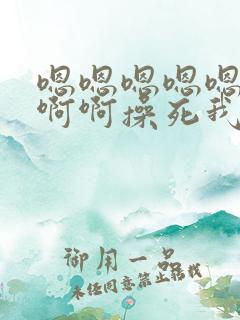 嗯嗯嗯嗯嗯
啊啊操死我
御用一品
未经同意禁止转载